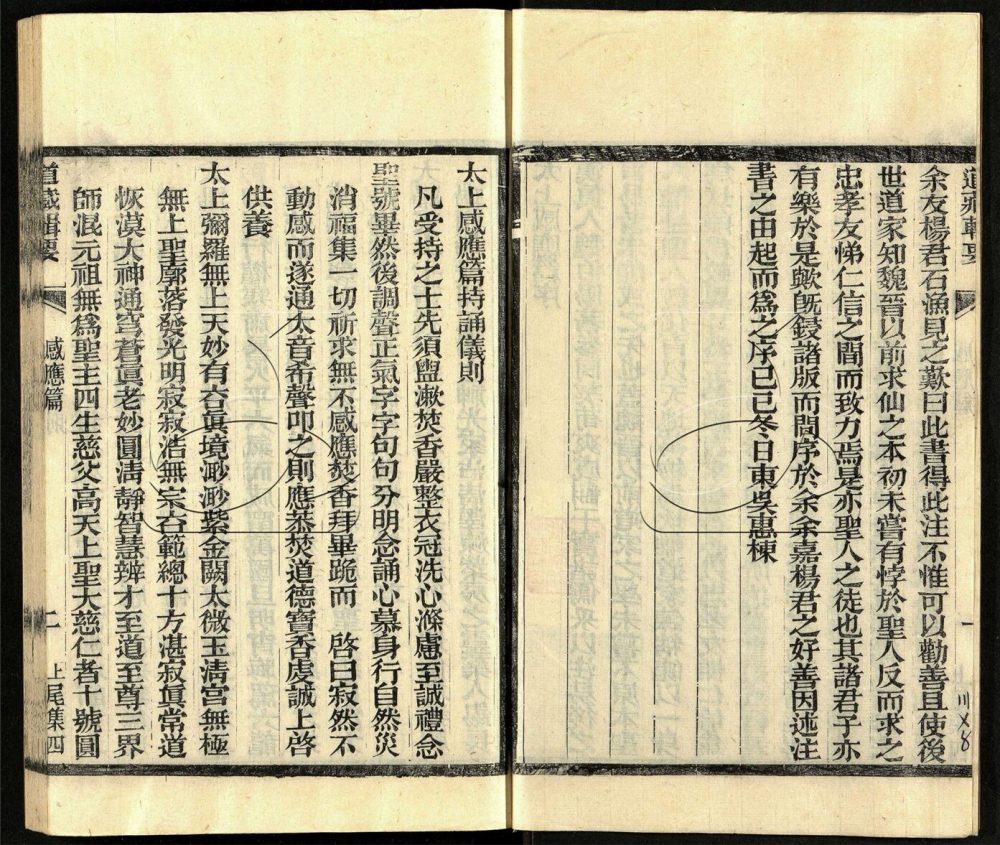 道藏輯要
一
余友楊君石漁見之歎曰此書得此注不惟可以勸善且使後
世道家知魏晉以前求仙之本初未嘗有悖於聖人反而求之
忠孝友悌仁信之間而致力焉是亦聖人之徒也其諸君子亦
有樂於是歟旣鋟諸版而問序於余余嘉楊君之好善因述注
書之由起而爲之序己巳冬日東吳惠棟
太上感應篇持誦儀則
凡受持之士先須盥漱焚香嚴整衣冠洗心滌慮至誠禮念
聖號畢然後調聲正氣字字句句分明念誦心慕身行自然災
消福集一切祈求無不感應焚香拜畢跪而 啓曰寂然不
動感而遂通太音希聲叩之則應恭焚道德寶香虔誠上啓
供養
太上彌羅無上天妙有玄眞境渺渺紫金闕太微玉淸宮無極
無上聖廓落發光明寂寂浩無宗玄範總十方湛寂眞常道
恢漠大神通穹蒼眞老妙圓淸靜智慧辨才至道至尊三界
師混元祖無爲聖主四生慈父高天上聖大慈仁者十號圓
道藏輯要 感應篇 二 上尾集四